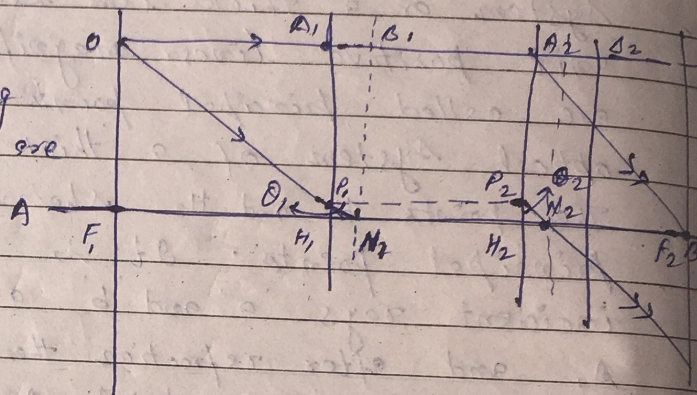 O A1 B1 A2 Δ2
g
ore
A F1 θ1 P1 H1 N2 P2 θ2 N2 H2 F2 B